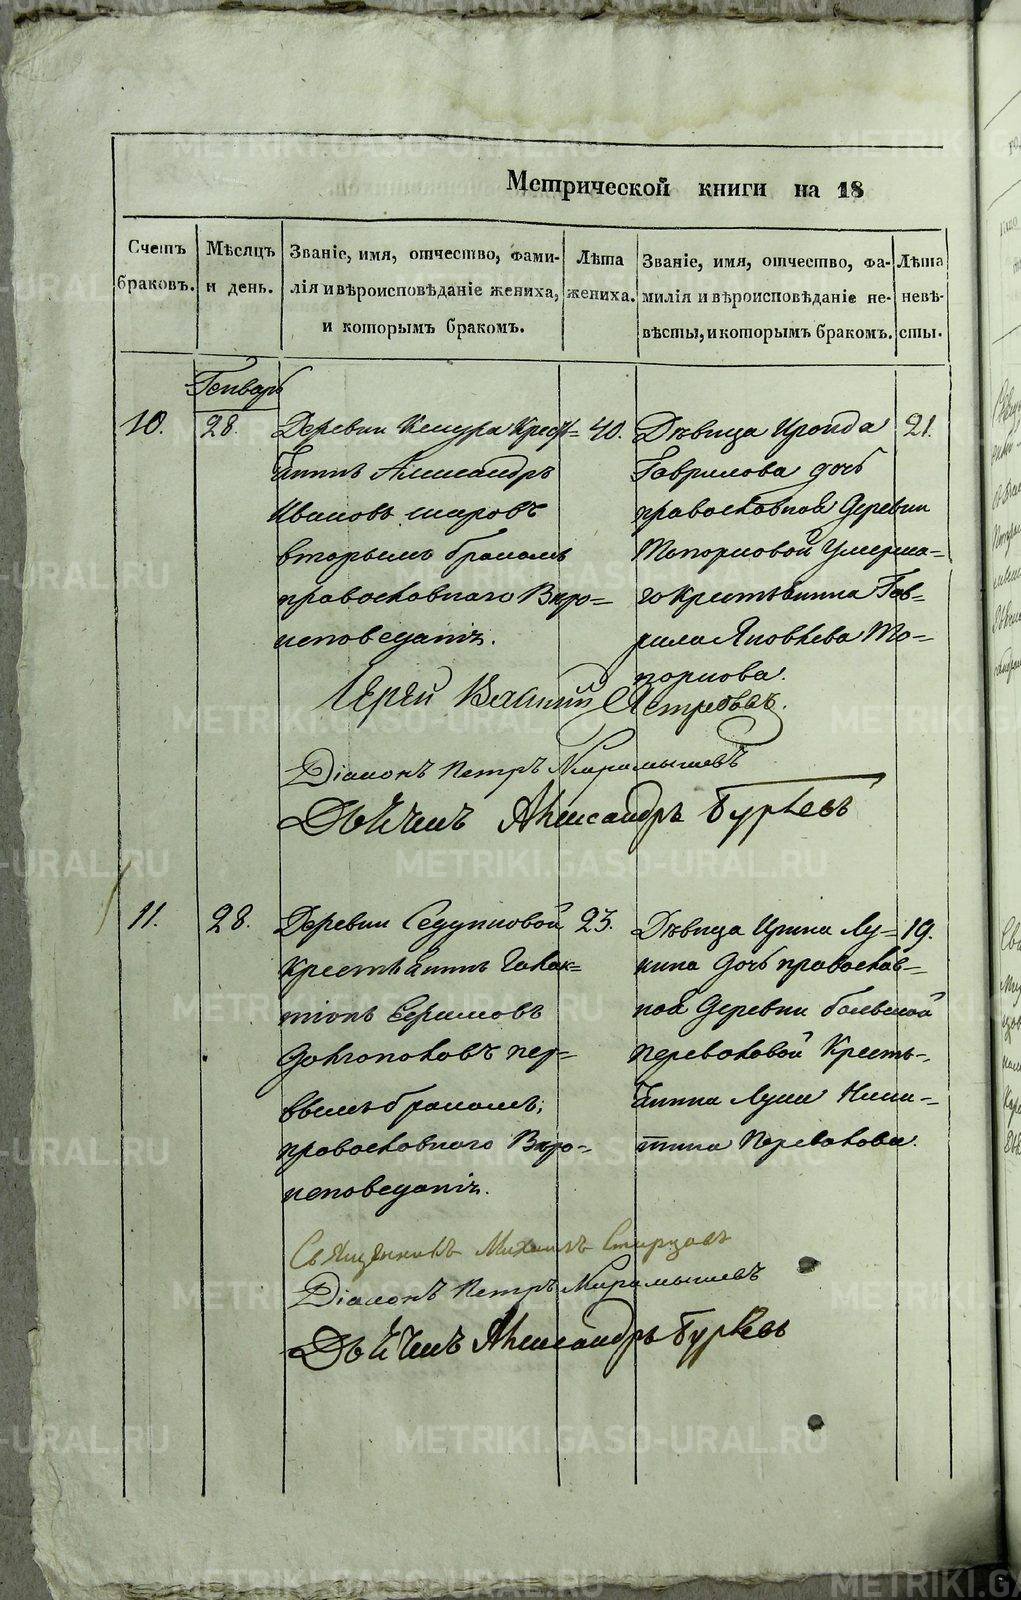 Метрической книги на 18
Счетъ браковъ.
Мѣсяцъ и день.
Званіе, имя, отчество, фами-
лія и вѣроисповѣданіе жениха,
и которымъ бракомъ.
Лѣта жениха.
Званіе, имя, отчество, фа-
милія и вѣроисповѣданіе не-
вѣсты, и которымъ бракомъ.
Лѣта невѣ-
сты.
Генварь
10.
28.
Деревни Крест=
янинъ Александръ
Ивановъ шаровъ
вторымъ бракомъ
православнаго Вѣро=
исповеданія.
40.
Дѣвица Ироида
Гаврилова дочь
православной Деревни
Топорковой Умерша=
го Крестьянина Гав=
рила Яковлева То=
поркова.
21.
Іерей Василий Ястребовъ.
Діаконъ Петръ Карамышевъ
Дьячекъ Александръ Бурлевъ
11.
28.
Деревни Седунковой
Крестьянинъ Галак=
тіонъ Ефимовъ
Долгополовъ пер=
вымъ бракомъ,
православнаго Вѣро=
исповеданія.
23.
Дѣвица Ирина Лу=
кина дочь православ=
ной Деревни большой
Переваловой Кресть=
янина Луки Ники=
тина Перевалова.
19.
Священникъ Михаилъ Старцовъ
Діаконъ Петръ Карамышевъ
Дьячекъ Александръ Бурлевъ
METRIKI.GASO-URAL.RU